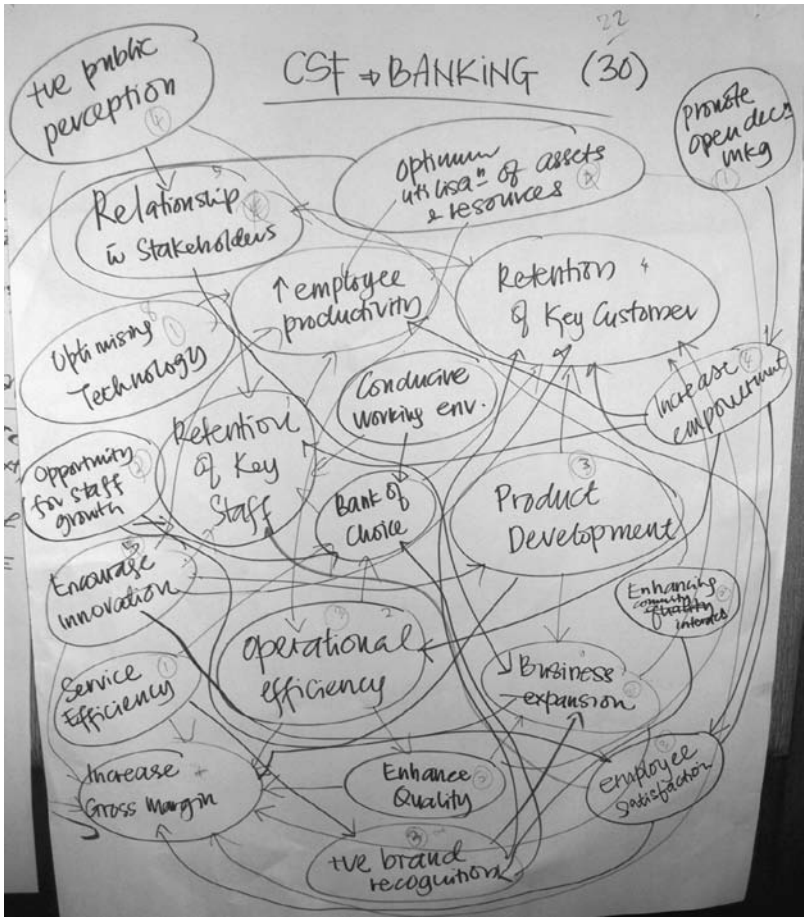 22
CSF ⇒ BANKING (30)
+ve public
perception
4
promote
open decn
mkg
1
Optimum
utilisan of assets
& resources
Relationship
in Stakeholders
↑ employee
productivity
Retention 4
of Key Customer
Optimising
Technology
1
Conducive
working env.
Increase
empowerment
4
Retention
of Key
Staff
Opportunity
for staff
growth
2
Bank of
Choice
3
Product
Development
5
Encourage
Innovation
Enhancing
community
quality
interests
3 2
Operational
efficiency
Service
Efficiency
1
Business
expansion
Increase +
Gross Margin
Enhance
Quality
2
employee
satisfaction
3
+ve brand
recognition